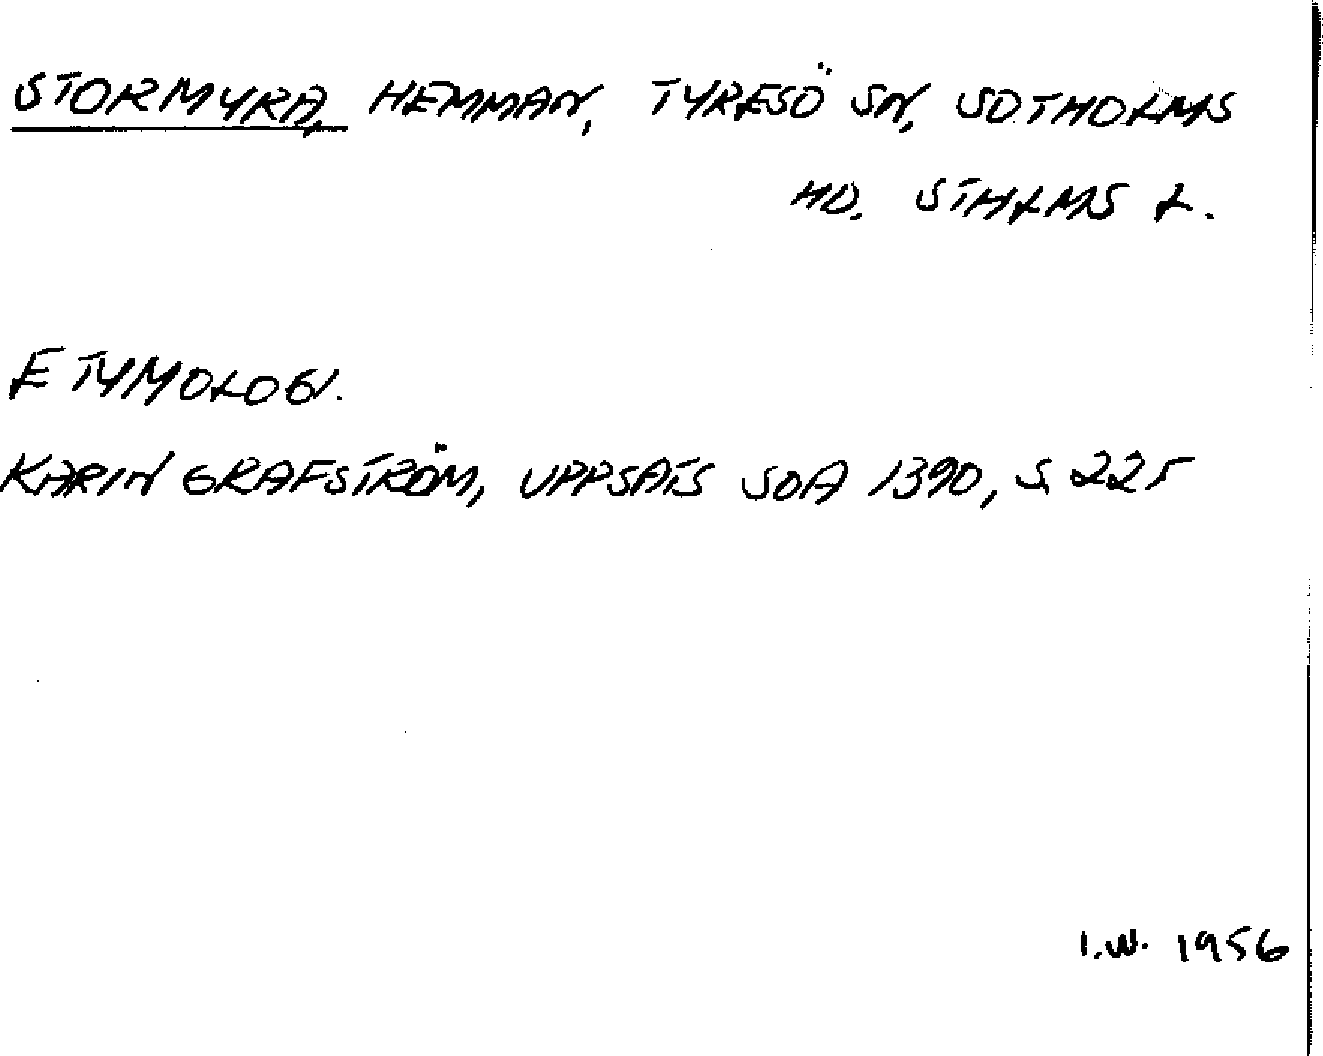 STORMYRA, HEMMAN, TYRESÖ SN, SOTHOLMS
HD. STHLMS L.
ETYMOLOGI.
KARIN GRAFSTRÖM, UPPSATS SOA 1390, S 225
I.W. 1956